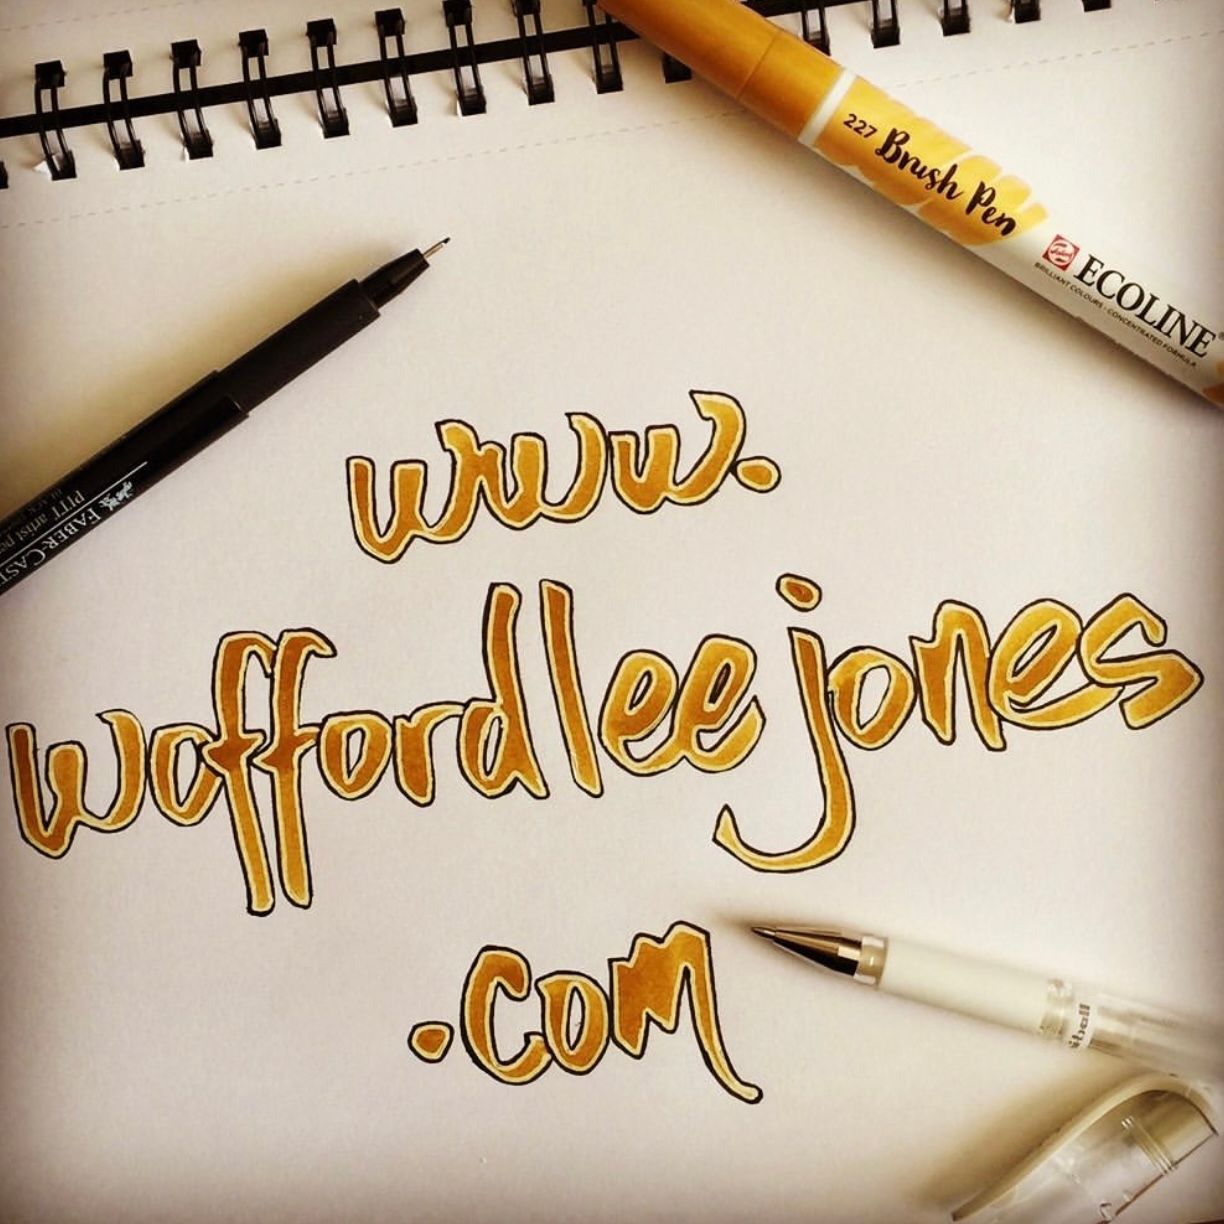 227 Brush Pen
ECOLINE
BRILLIANT COLOURS · CONCENTRATED FORMULA
FABER-CAST
PITT artist pe
www.
woffordleejones
.com
iball